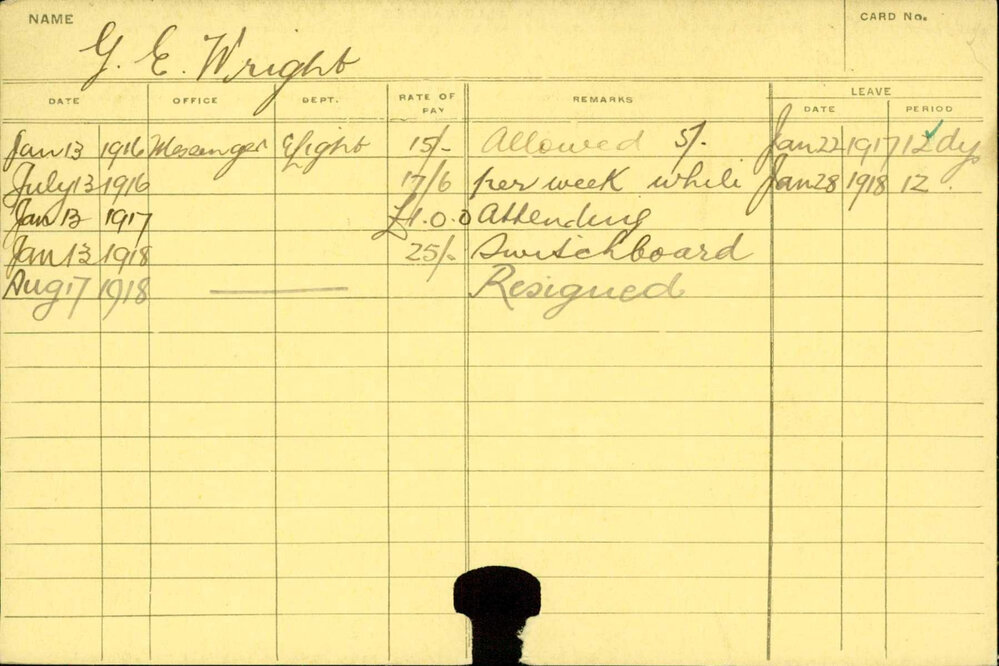 NAME
CARD No.
G. E. Wright
DATE OFFICE DEPT. RATE OF PAY REMARKS LEAVE
DATE PERIOD
Jan 13 1916 Messenger Elight 15/- Allowed 5/- Jan 22 1917 12 dys
July 13 1916 17/6 per week while Jan 28 1918 12
Jan 13 1917 £1.0.0 Attending
Jan 13 1918 25/- Switchboard
Aug 17 1918 Resigned